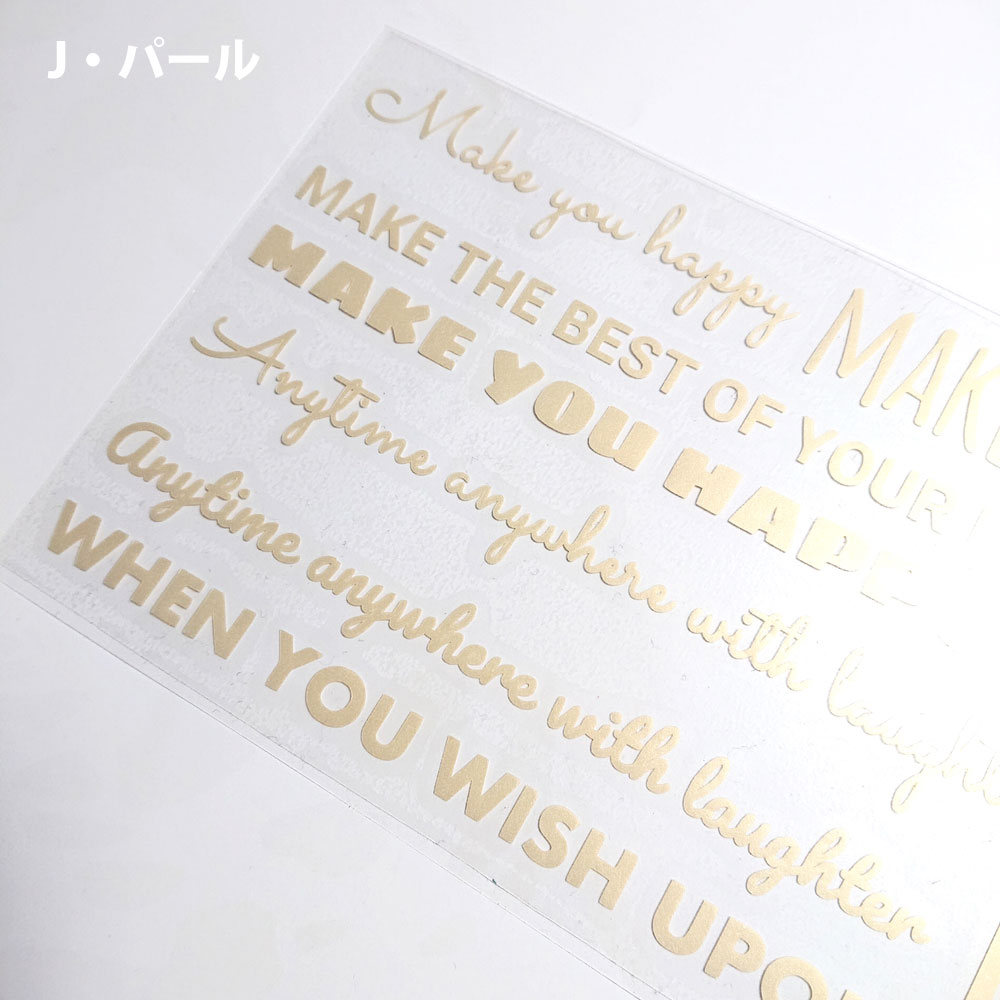 J・パール
Make you happy
MAKE
MAKE THE BEST OF YOUR
MAKE YOU HAPP
Anytime anywhere with laughte
Anytime anywhere with laughter
WHEN YOU WISH UPO